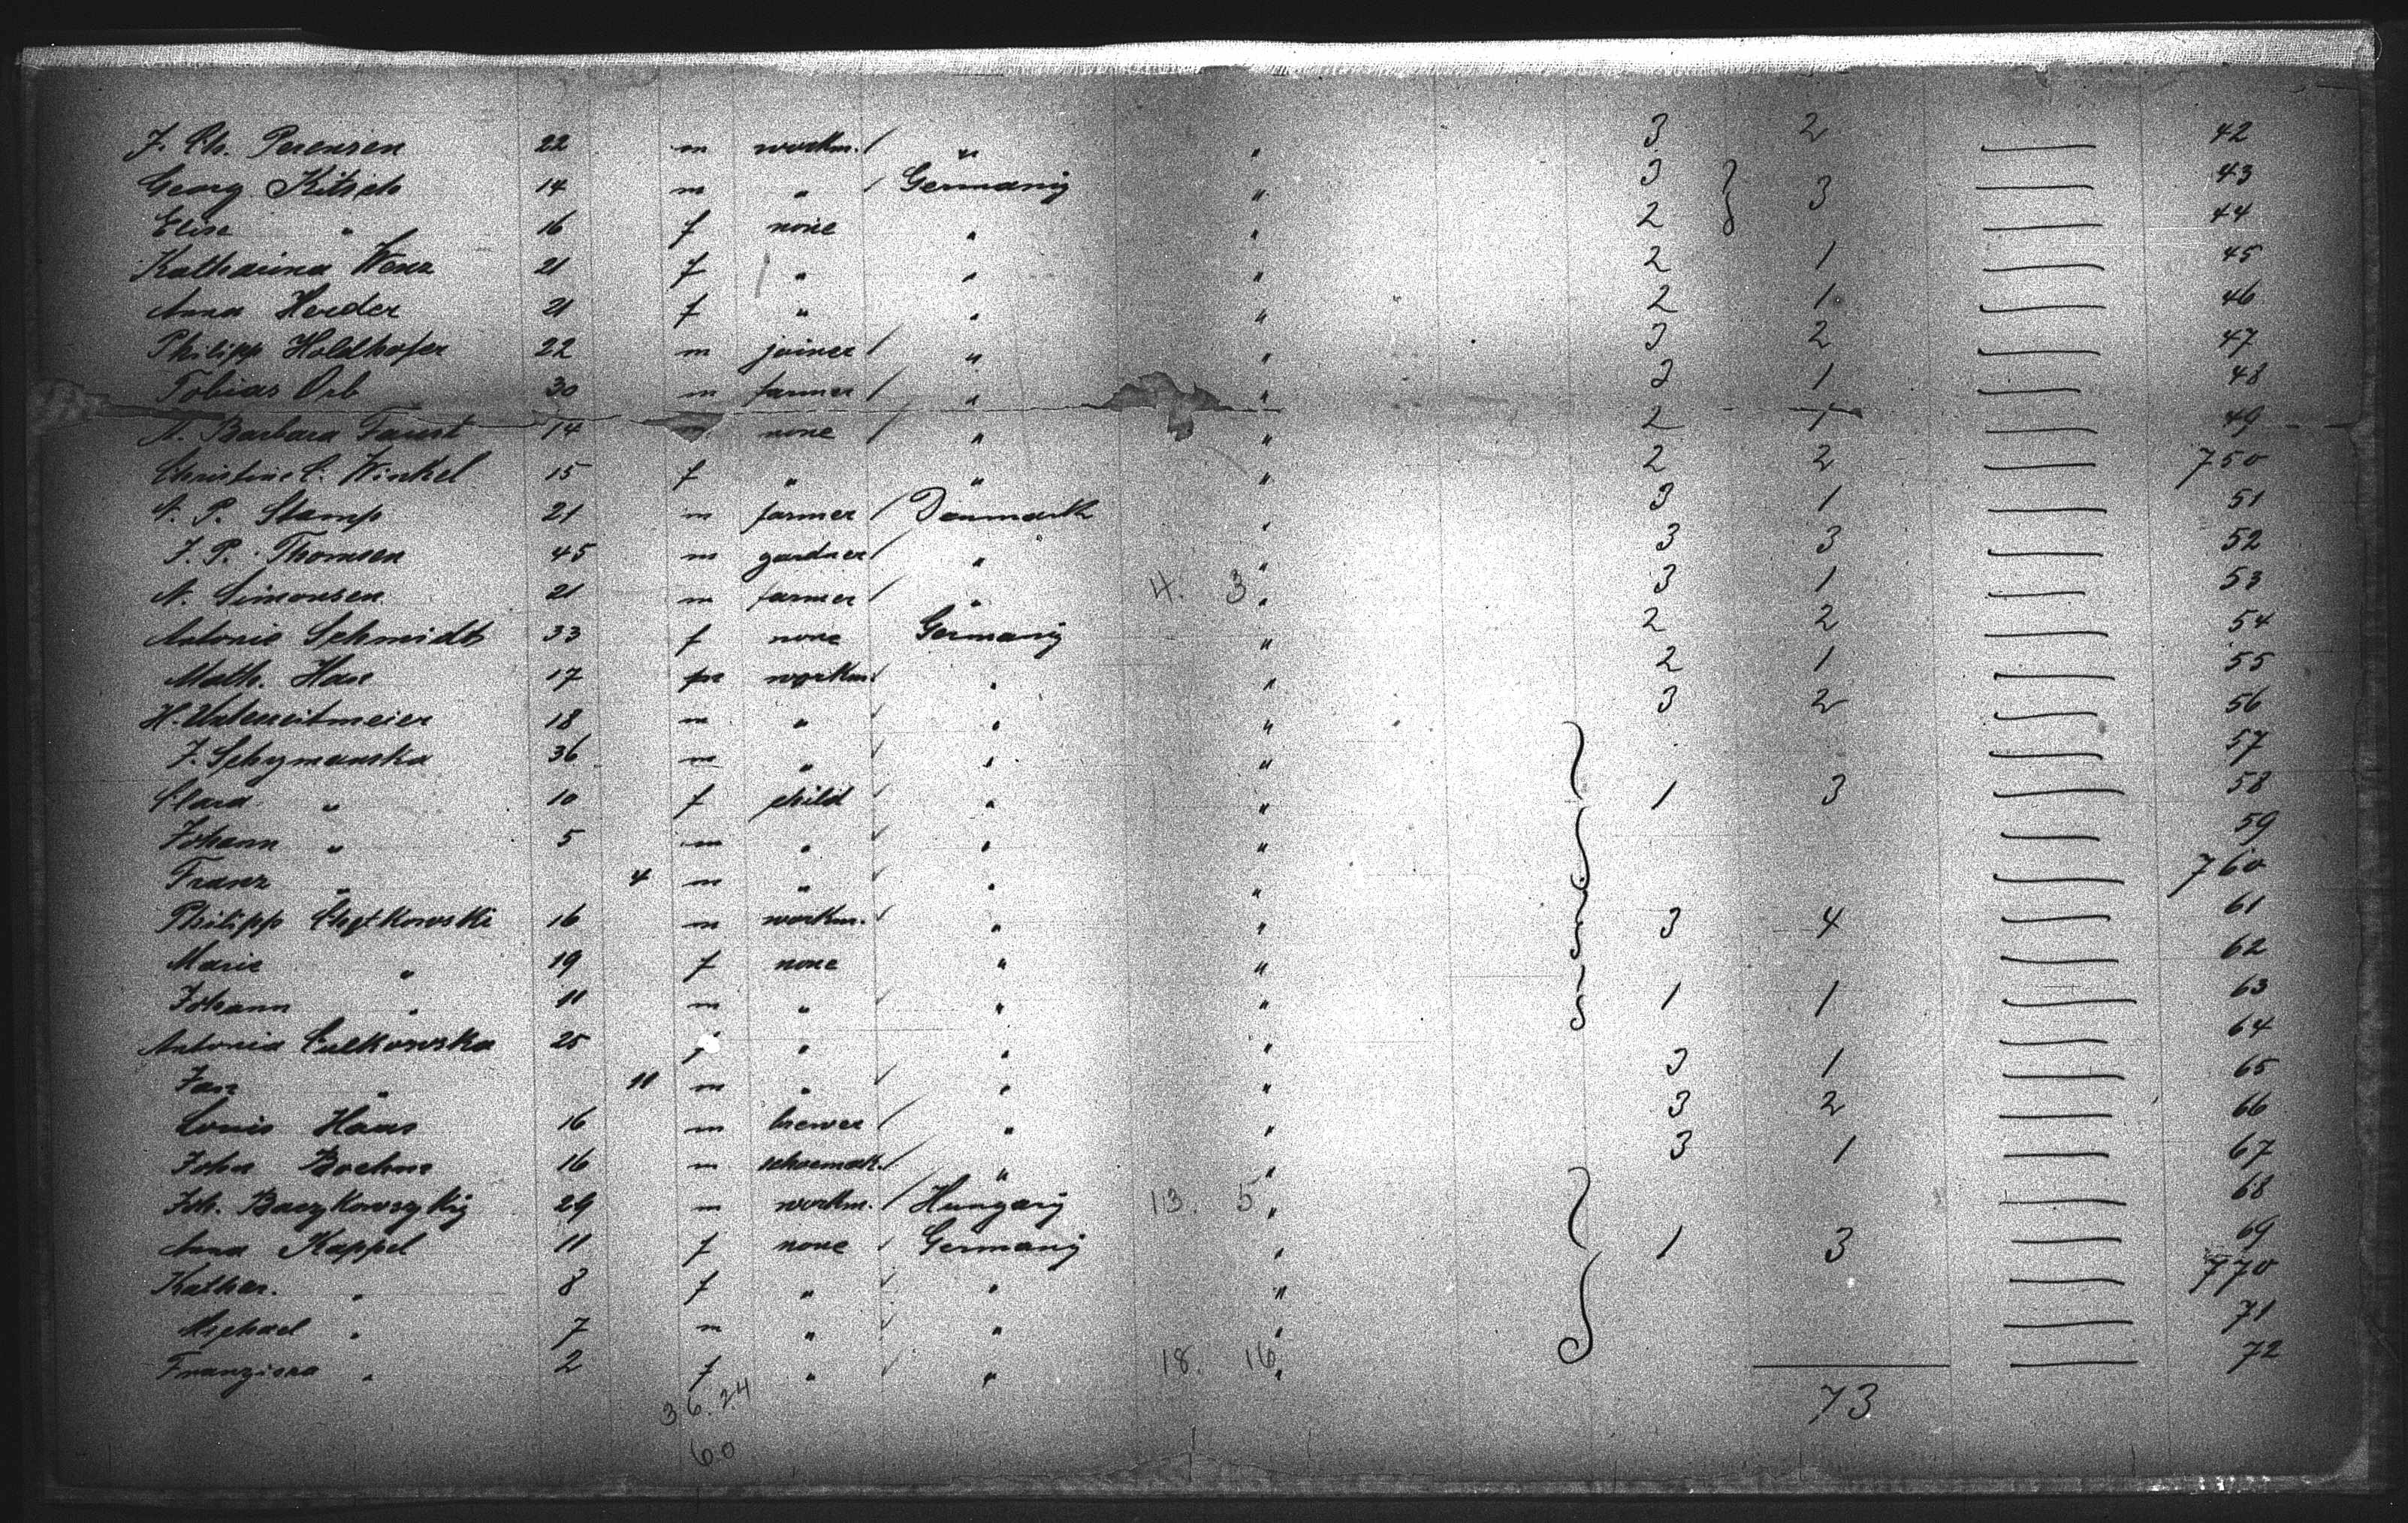 J. Ch. Perensen 22 m workm. / " " 3 2 — 42
Georg Kitsch 14 m " / Germany " 3 } 3 — 43
Elise " 16 f none " " 2 — 44
Katharina Wenz 21 f " " " 2 1 — 45
Anna Herder 21 f " " " 2 1 — 46
Philipp Holdhofer 22 m joiner / " " 3 2 — 47
Tobias Orb 30 m farmer / " " 2 1 — 48
A. Barbara Faust 14 none / " " 2 1 — 49
Christine C. Winkel 15 f " " " 2 2 — 750
P. Stamp 21 m farmer / Danmark " 3 1 — 51
J. P. Thomsen 45 m gardner / " " 3 3 — 52
N. Simonsen 21 m farmer / " 4. 3 " 3 1 — 53
Antonie Schmidt 33 f none Germany " 2 2 — 54
Math. Haas 17 m workm. / " " 2 1 — 55
H. 18 m " / " " 3 2 — 56
J. Schymanska 36 m " / " " — 57
Clara " 10 f child / " " 1 3 — 58
Johann " 5 m " / " " — 59
Franz " 4 m " / " " — 760
Philipp Chytkowski 16 m workm. / " " 3 4 — 61
Marie " 19 f none " " — 62
Johann " 11 m " / " " 1 1 — 63
Antonia Culkowska 25 f " " " — 64
Jan " 11 m " / " " 3 1 — 65
Louis Haas 16 m brewer / " " 3 2 — 66
John Boehm 16 m schoemak. / " " 3 1 — 67
Joh. Baczkowszkig 29 m workm. / Hungary 13. 5 " — 68
Anna Kappel 11 f none / Germany " 1 3 — 69
Kathar. " 8 f " / " " — 770
Michael " 7 m " / " " — 71
Franziska " 2 f " / " 18. 16 " — 72
36. 24 73
60